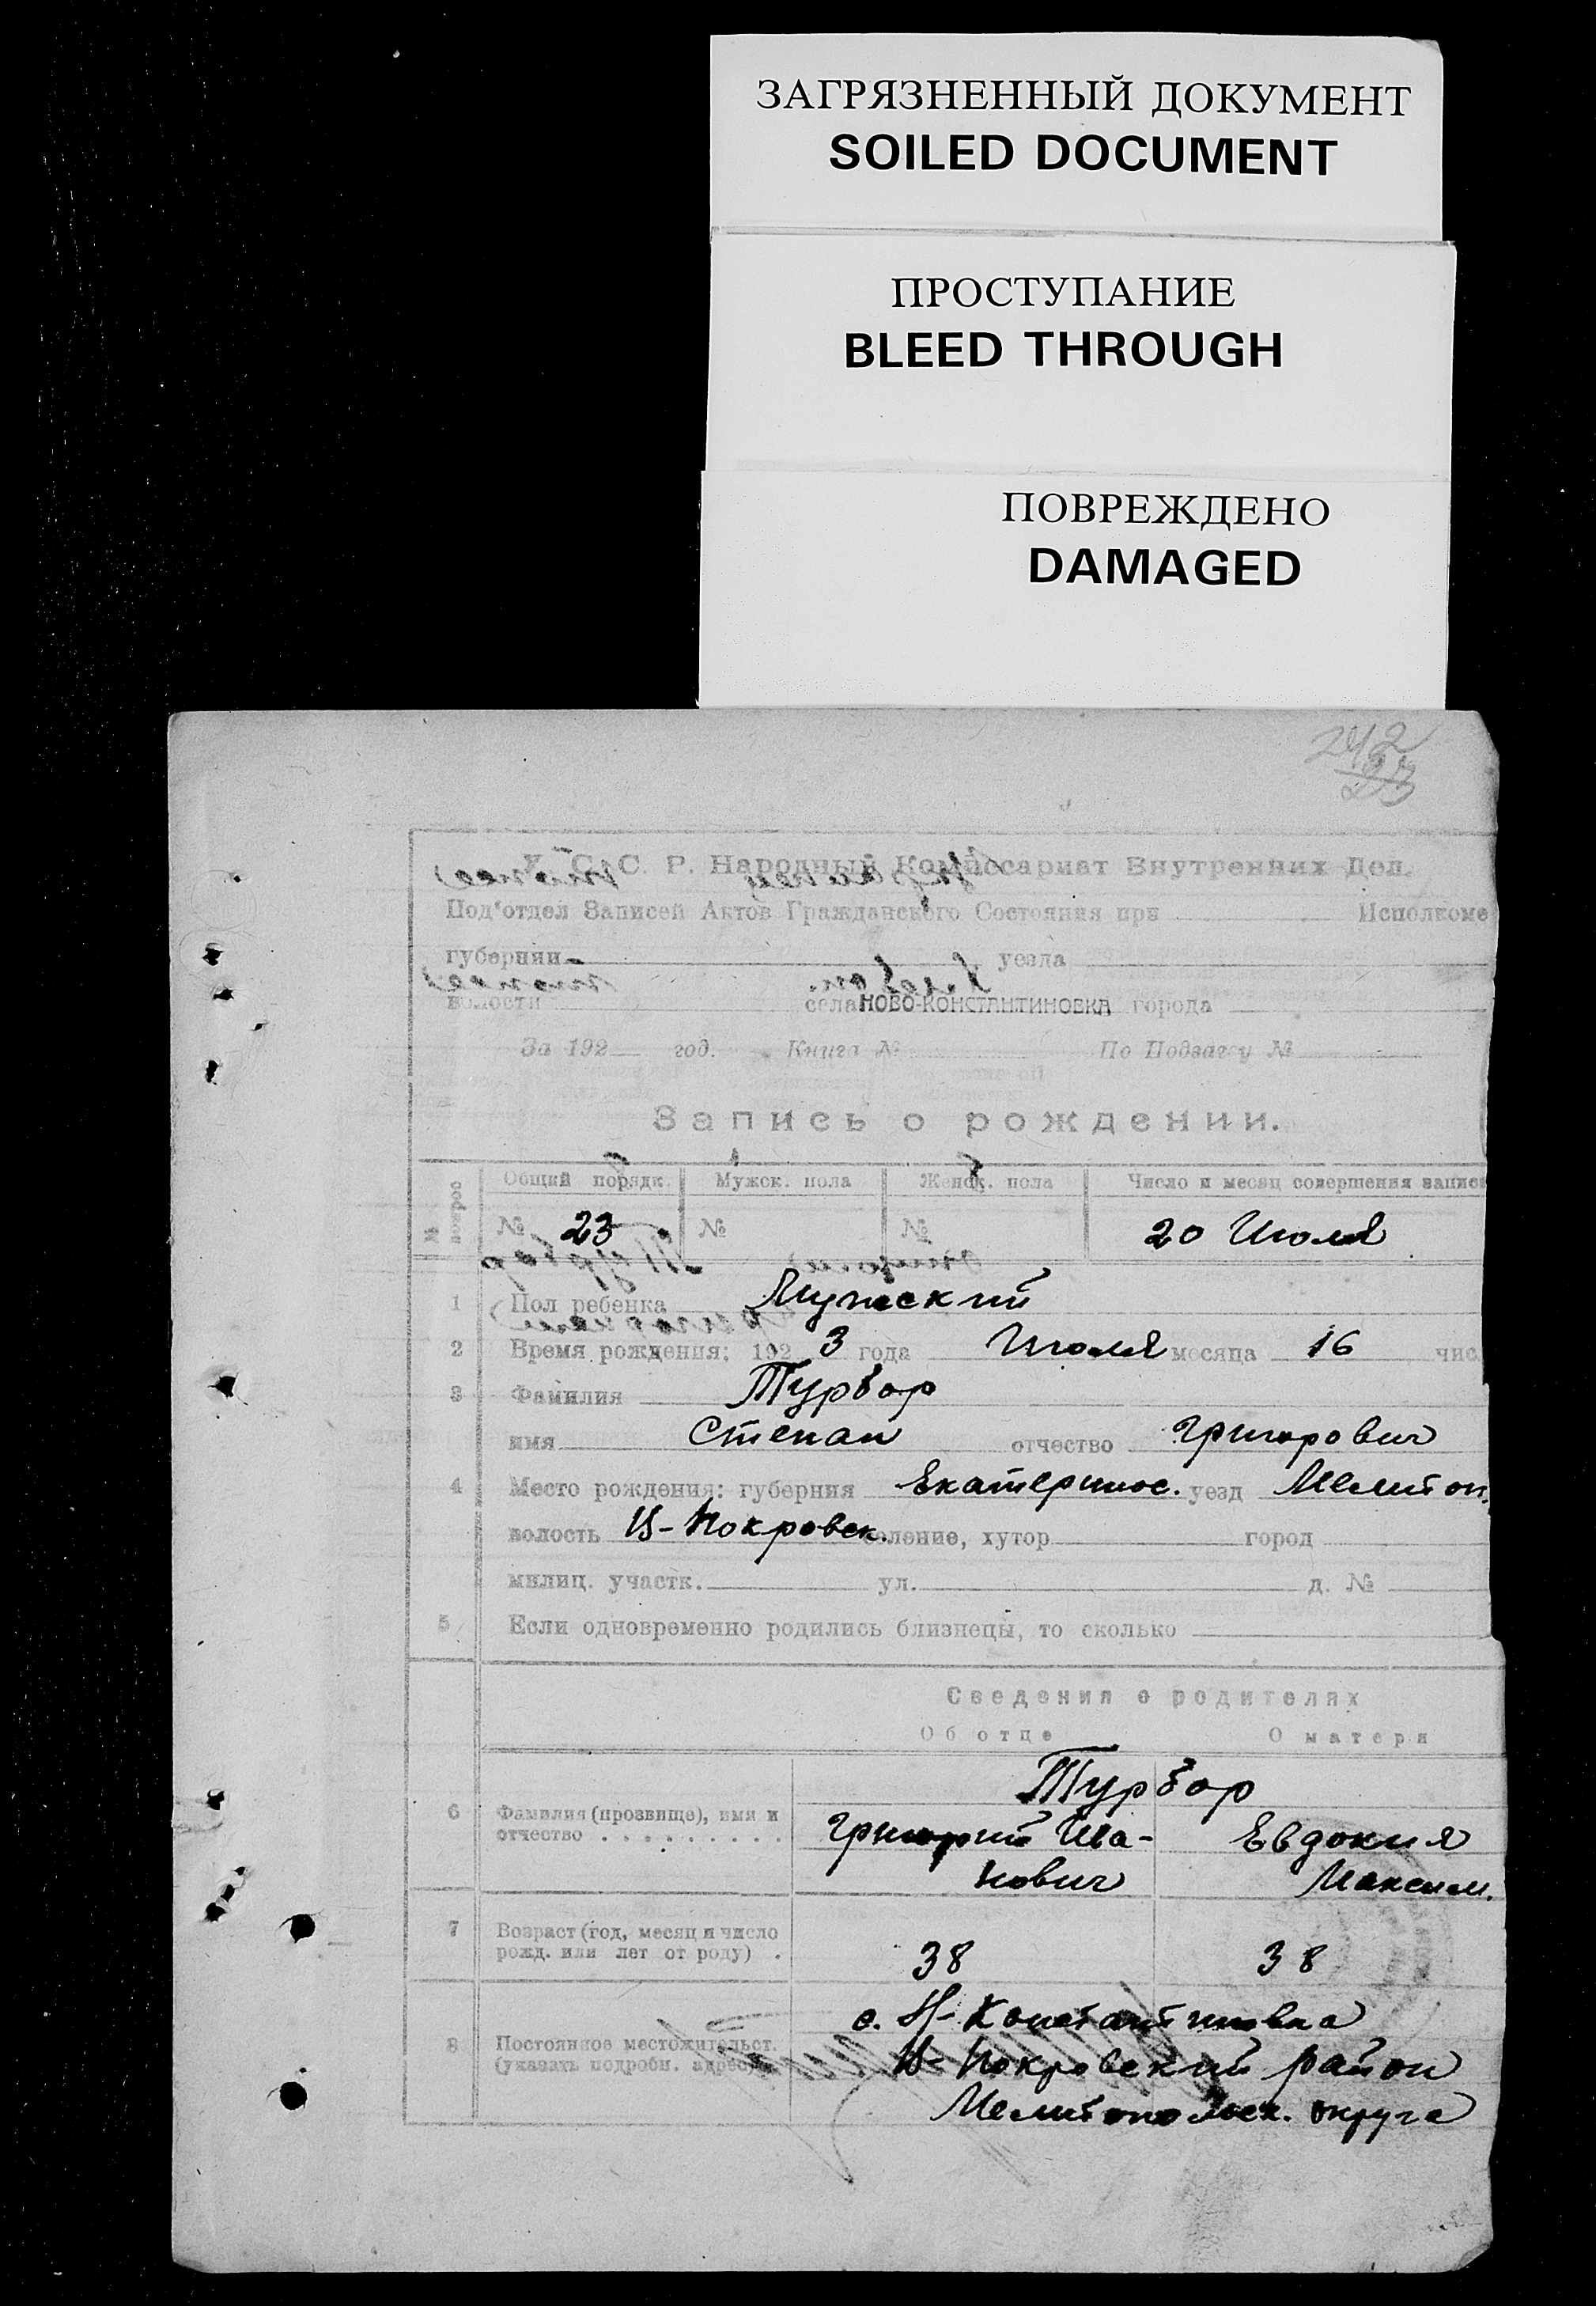 ЗАГРЯЗНЕННЫЙ ДОКУМЕНТ
SOILED DOCUMENT
ПРОСТУПАНИЕ
BLEED THROUGH
ПОВРЕЖДЕНО
DAMAGED
242
У. С. С. Р. Народный Комиссариат Внутренних Дел.
Под'отдел Записей Актов Гражданского Состояния при Исполкоме
губернии уезда
волости села НОВО-КОНСТАНТИНОВКА города
За 192 год. Книга № По Подзагсу №
Запись о рождении.
№ вопрос Общий порядк. Мужск. пола Женск. пола Число и месяц совершения записи
№ 23 № № 20 Июля
1 Пол ребенка Мужеский
2 Время рождения: 192 3 года Июля месяца 16 чис
3 Фамилия Турбар
имя Степан отчество Григорович
4 Место рождения: губерния Екатеринос. уезд Мелитоп.
волость Н-Покровск. селение, хутор город
милиц. участк. ул. д. №
5 Если одновременно родились близнецы, то сколько
Сведения о родителях
Об отце О матери
Турбар
6 Фамилия (прозвище), имя и отчество Григорий Ива- Евдокия
нович Максим.
7 Возраст (год, месяц и число
рожд. или лет от роду) . 38 38
с. Н-Константиновка
8 Постоянное местожительст.
(указать подробн. адрес) Н-Покровский район
Мелитопольск. округа